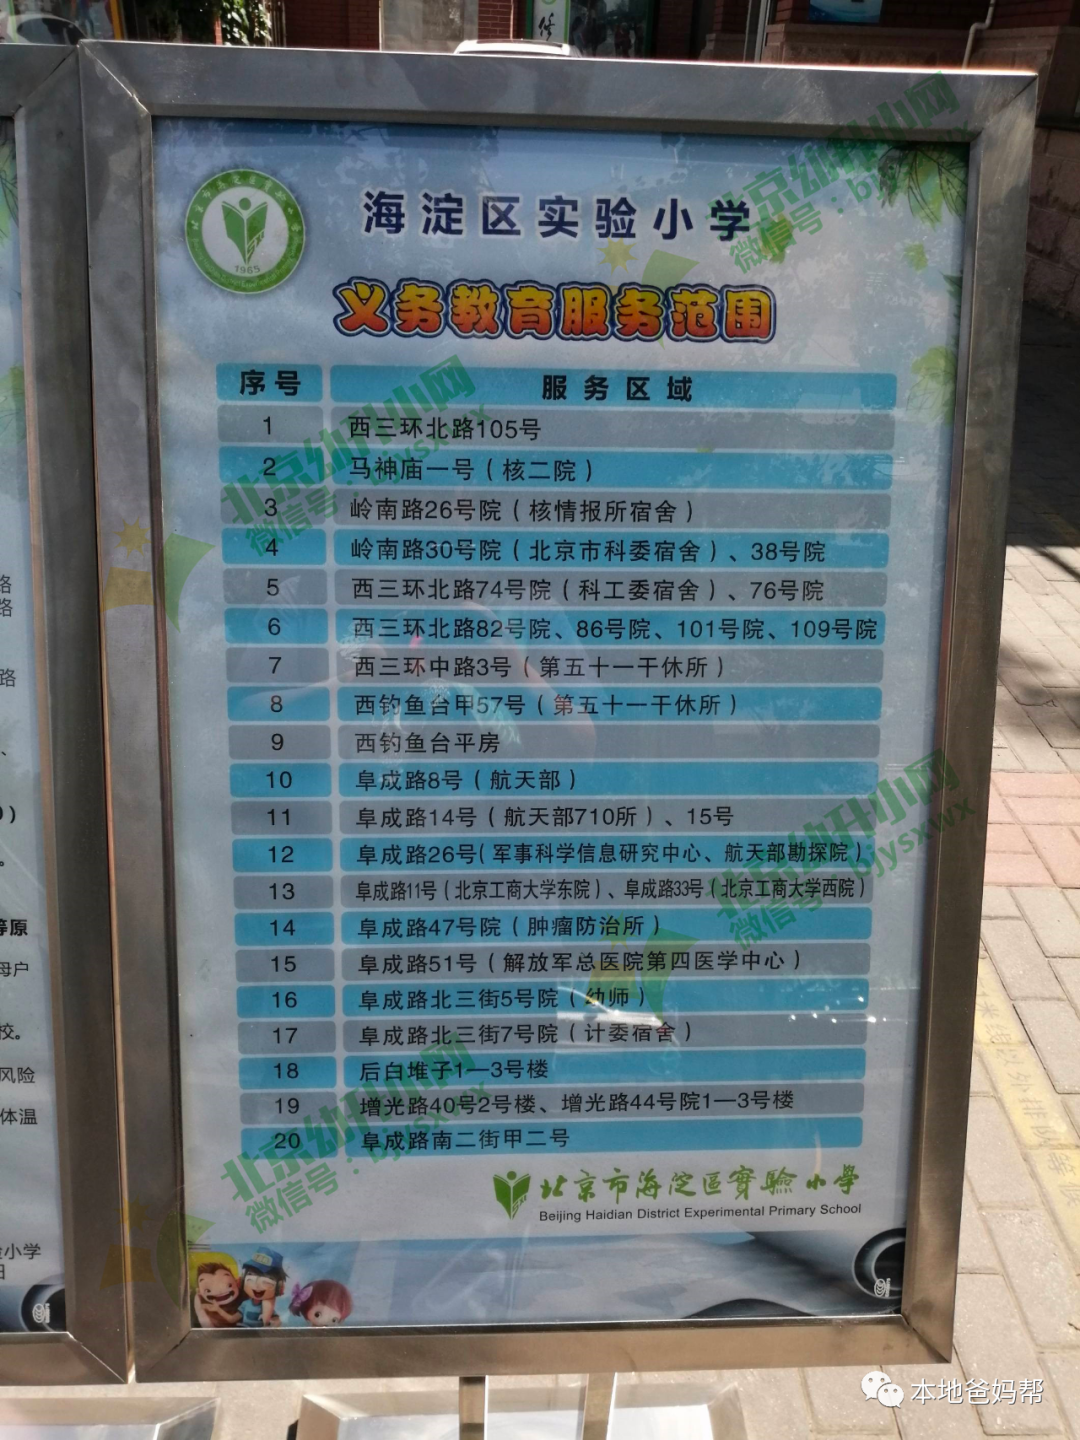 海淀区实验小学
1965
义务教育服务范围
序号 服务区域
1 西三环北路105号
2 马神庙一号（核二院）
3 岭南路26号院（核情报所宿舍）
4 岭南路30号院（北京市科委宿舍）、38号院
5 西三环北路74号院（科工委宿舍）、76号院
6 西三环北路82号院、86号院、101号院、109号院
7 西三环中路3号（第五十一干休所）
8 西钓鱼台甲57号（第五十一干休所）
9 西钓鱼台平房
10 阜成路8号（航天部）
11 阜成路14号（航天部710所）、15号
12 阜成路26号（军事科学信息研究中心、航天部勘探院）
13 阜成路11号（北京工商大学东院）、阜成路33号（北京工商大学西院）
14 阜成路47号院（肿瘤防治所）
15 阜成路51号（解放军总医院第四医学中心）
16 阜成路北三街5号院（幼师）
17 阜成路北三街7号院（计委宿舍）
18 后白堆子1—3号楼
19 增光路40号2号楼、增光路44号院1—3号楼
20 阜成路南二街甲二号
北京市海淀區實驗小學
Beijing Haidian District Experimental Primary School
北京幼升小网
微信号：bjysxwx
北京幼升小网
微信号：bjysxwx
北京幼升小网
微信号：bjysxwx
北京幼升小网
微信号：bjysxwx
路
路
路
等原
母户
校。
风险
体温
小学
日
本地爸妈帮